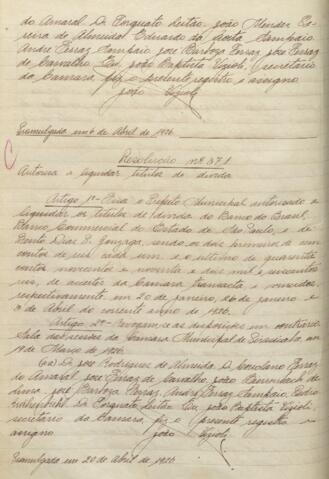 do Amaral D. Torquato Leitão João Mendes Pe-
reira de Almeida Eduardo da Costa Sampaio
André Ferraz Sampaio José Barboza Ferraz José Ferraz
de Carvalho Eu, João Baptista Vizioli, secretario
da Camara, fiz o presente registro e assigno.
João Vizioli
Promulgada em 6 de Abril de 1926.
Resolução nº 371
Autorisa a liquidar titulos de divida
Artigo 1º Fica o Prefeito Municipal autorisado a
liquidar os titulos de divida do Banco do Brasil,
Banco Commercial do Estado de São Paulo, e de
Bento Dias F. Gonzaga, sendo os dois primeiros de cem
contos de reis cada um e o ultimo de quarenta
contos novecentos e noventa e dois mil e
reis, de acceites da Camara transacta e vencidos,
respectivamente em 20 de janeiro, 26 de janeiro e
3 de Abril do corrente anno de 1926.
Artigo 2º Revogam-se as disposições em contrario.
Sala das sessões da Camara Municipal de Piracicaba, em
19 de Março de 1926.
(aa) D. José Rodrigues de Almeida, D. Coriolano Ferraz
do Amaral José Ferraz de Carvalho João
de Lima José Barboza Ferraz, André Ferraz Sampaio, Pedro
D. Torquato Leitão Eu, João Baptista Vizioli,
secretario da Camara, fiz o presente registro e
assigno
João Vizioli.
Promulgada em 20 de Abril de 1926